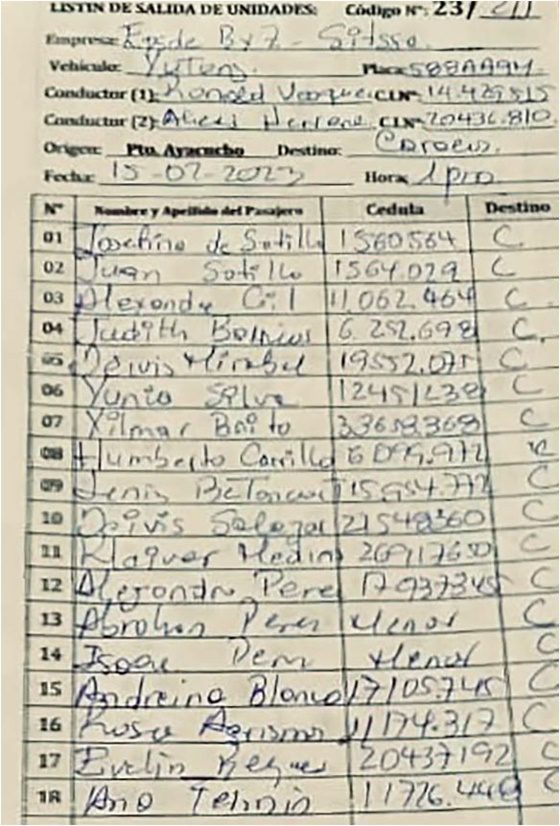 LISTIN DE SALIDA DE UNIDADES: Código Nº: 23/
Empresa: Bx7 - Sitsso.
Vehiculo: Yutong. Placa: 588AA9M
Conductor (1): Ronald C.I.Nº 14.429.515
Conductor (2): Herrera C.I.Nº 20436.810.
Origen: Pto. Ayacucho Destino:
Fecha: 15-07-2023 Hora: 1pm
Nº Nombre y Apellido del Pasajero Cedula Destino
01 Josefina de Sotillo 1560564 C
02 Juan Sotillo 1564.029 C
03 Alexonde Gil 11,062.464 C
04 Judith 6.252,698 C.
05 Deivis Mirabel 19552.071 C
06 Yunio Silva 12451238 C
07 Yilmar Brito 33658.368 C
08 Humberto Carrillo 6099.972
09 Lenin Betancourt 15,954.772 C
10 Deivis Salazar 21548360 C
11 Medina 26917650 C
12 Alejandro Perez 17937345 C
13 Abrohan Perez Menor C
14 Isaac Menor C
15 Andreina Blanco 17105.745 C
16 Rosa 11174.317 C
17 Evelin 20437192 C
18 Ana 11726.448 C